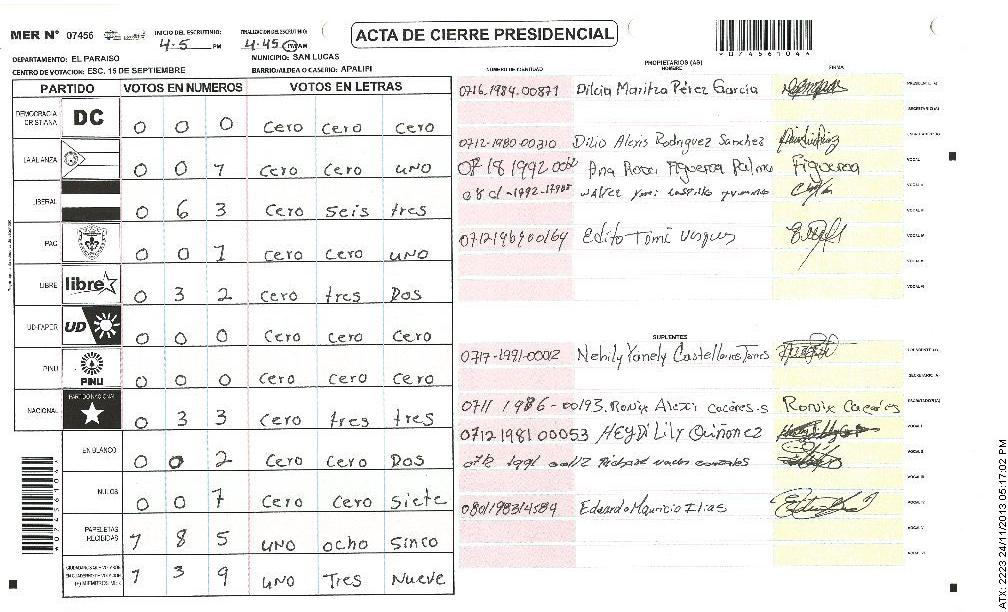 MER Nº 07456
INICIO DEL ESCRUTINIO:
4-5 PM
FINALIZACION DEL ESCRUTINIO:
4-45 PM AM
ACTA DE CIERRE PRESIDENCIAL
DEPARTAMENTO: EL PARAISO
MUNICIPIO: SAN LUCAS
CENTRO DE VOTACION: ESC. 15 DE SEPTIEMBRE
BARRIO/ALDEA O CASERIO: APALIPI
PARTIDO VOTOS EN NUMEROS VOTOS EN LETRAS
DEMOCRACIA CRISTIANA DC 0 0 0 Cero Cero Cero
LA ALIANZA 0 0 1 Cero Cero uno
LIBERAL 0 6 3 Cero seis tres
PAC 0 0 1 Cero Cero uno
LIBRE libre 0 3 2 Cero tres Dos
UD-FAPER UD 0 0 0 Cero Cero Cero
PINU PINU 0 0 0 Cero Cero Cero
NACIONAL PARTIDO NACIONAL 0 3 3 Cero tres tres
EN BLANCO 0 0 2 Cero Cero Dos
NULOS 0 0 7 Cero Cero Siete
PAPELETAS RECIBIDAS 1 8 5 uno ocho Sinco
1 3 9 uno Tres Nueve
PROPIETARIOS (AS)
NUMERO DE IDENTIDAD NOMBRE FIRMA
0716-1984-00871 Dilcia Maritza Pérez García
0712-1980-00310 Dilio Alexis Rodriguez Sanchez
Ana Rosa Figueroa Palma Figueroa
0712196900164 Edito Tomi
SUPLENTES
0717-1991-00012 Nehily Yanely Castellanos Torres
0711 1986-00193 Ronix Alexi caceres.s Ronix Caceres
0712 1981 00053 HEYDI LILY Quiñonez
0801198314584 Eduardo Mauricio Elias
0 7 4 5 6 1 0 4 4
ATX: 2223 24/11/2013 05:17:02 PM